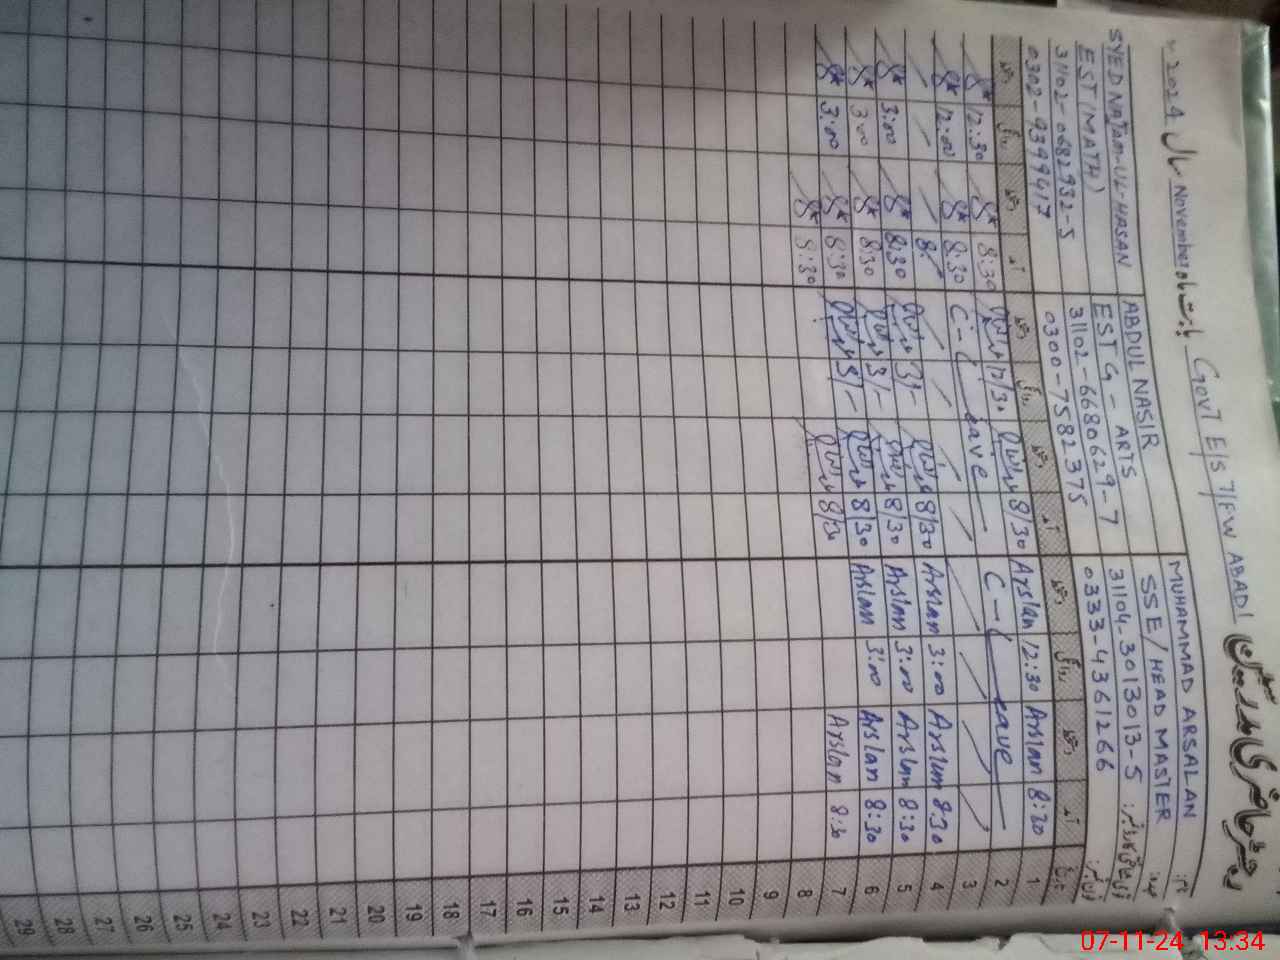 رجسٹر حاضری مدرسین
Govt E/S 7/FW ABADI بابت ماہ November سال 2024
نام:
MUHAMMAD ARSALAN
ABDUL NASIR
SYED NAJAM-UL-HASAN
عہدہ:
SSE/HEAD MASTER
EST G - ARTS
EST (MATH)
شناختی کارڈ نمبر:
31104-3013013-5
31102-6680629-7
31102-0682932-5
فون نمبر:
0333-4361266
0300-7582375
0302-9399417
تاریخ آمد دستخط روانگی دستخط آمد دستخط روانگی دستخط آمد دستخط روانگی دستخط
1 8:30 Arslan 12:30 Arslan 8/30 12/30 8:30 12:30
2 C-Leave C-Leave 8:30 12:00
3
4 8:30 Arslan 3:00 Arslan 8/30 3/- 8:30 3:00
5 8:30 Arslan 3:00 Arslan 8/30 3/- 8:30 3:00
6 8:30 Arslan 3:00 Arslan 8/30 3/- 8:30 3:00
7 8:30 Arslan 8/30 8:30
8
9
10
11
12
13
14
15
16
17
18
19
20
21
22
23
24
25
26
27
28
29
07-11-24 13:34